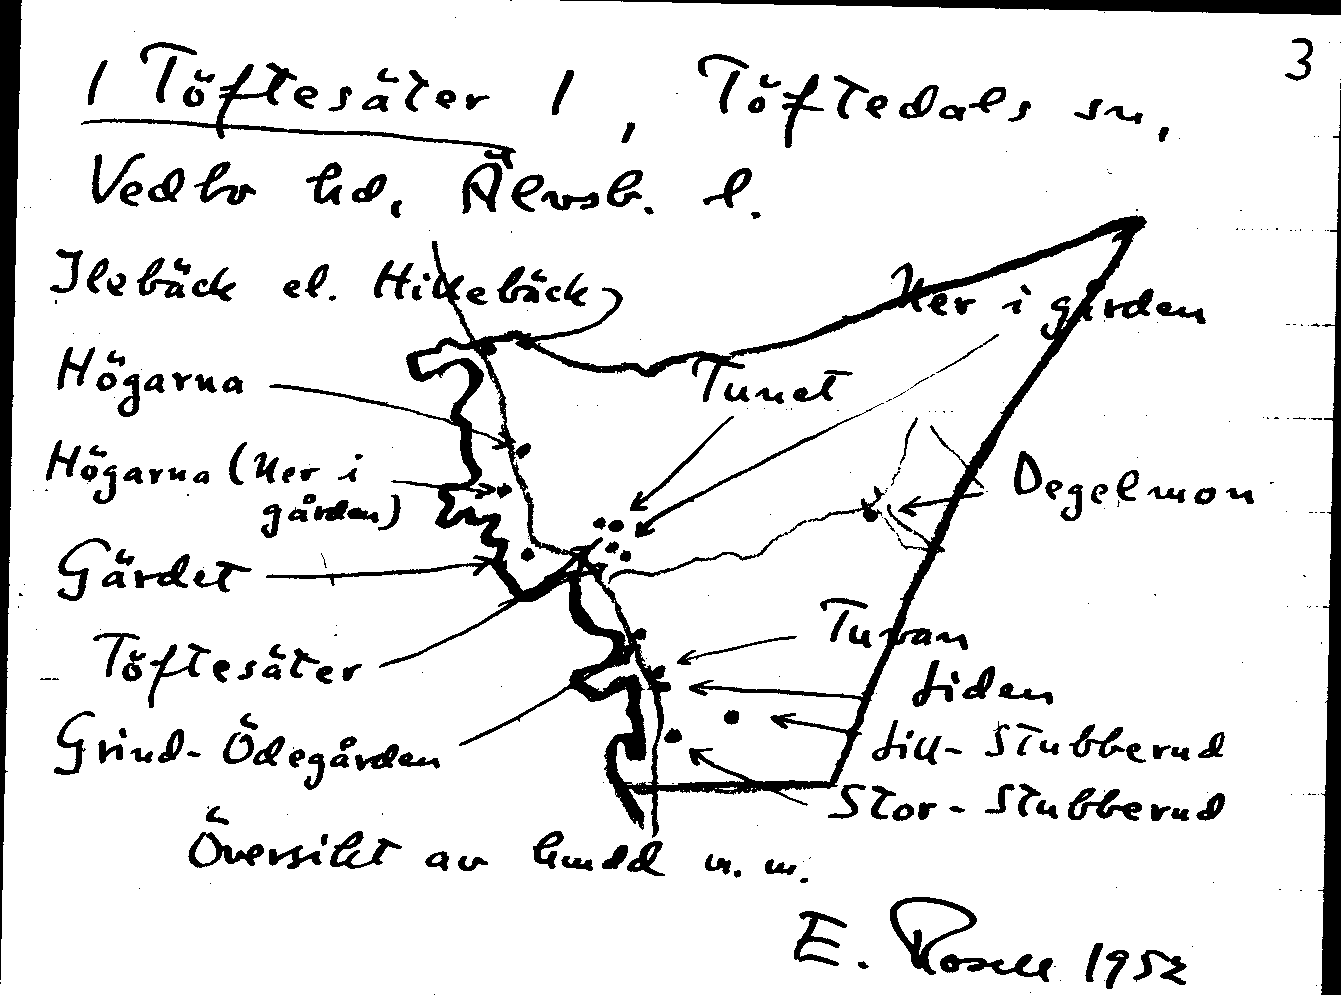 3
1 Töftesäter 1, Töftedals sn,
Vedbo hd, Älvsb. l.
Ilebäck el. Hillebäck
Ner i gården
Högarna
Tunet
Högarna (Ner i
gården)
Degelmon
Gärdet
Tuvan
Töftesäter
Liden
Grind-Ödegården
Lill-Stubberud
Stor-Stubberud
Översikt av hmdd m.m.
E. Rosell 1952